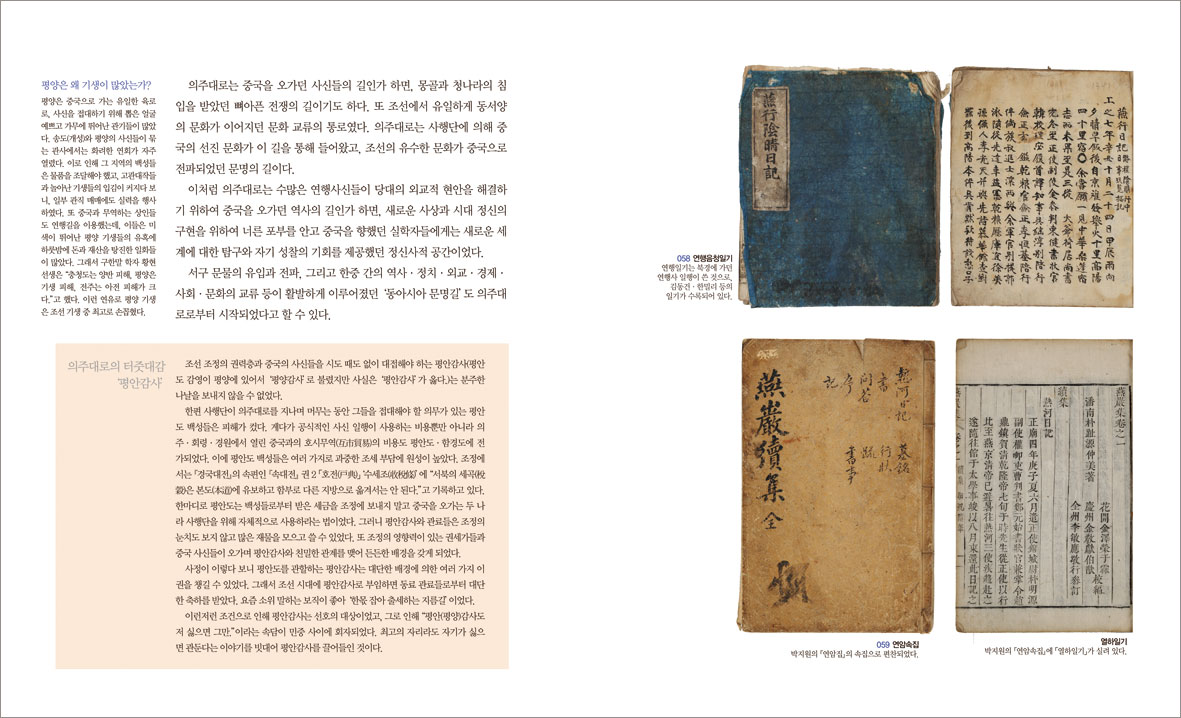 평양은 왜 기생이 많았는가?
평양은 중국으로 가는 유일한 육로
로, 사신을 접대하기 위해 뽑은 얼굴
예쁘고 가무에 뛰어난 관기들이 많았
다. 송도(개성)와 평양의 사신들이 묵
는 관사에서는 화려한 연회가 자주
열렸다. 이로 인해 그 지역의 백성들
은 물품을 조달해야 했고, 고관대작들
과 놀아난 기생들의 입김이 커지다 보
니, 일부 관직 매매에도 실력을 행사
하였다. 또 중국과 무역하는 상인들
도 연행길을 이용했는데, 이들은 미
색이 뛰어난 평양 기생들의 유혹에
하룻밤에 돈과 재산을 탕진한 일화들
이 많았다. 그래서 구한말 학자 황현
선생은 “충청도는 양반 피해, 평양은
기생 피해, 전주는 아전 피해가 크
다.”고 했다. 이런 연유로 평양 기생
은 조선 기생 중 최고로 손꼽혔다.
의주대로는 중국을 오가던 사신들의 길인가 하면, 몽골과 청나라의 침
입을 받았던 뼈아픈 전쟁의 길이기도 하다. 또 조선에서 유일하게 동서양
의 문화가 이어지던 문화 교류의 통로였다. 의주대로는 사행단에 의해 중
국의 선진 문화가 이 길을 통해 들어왔고, 조선의 유수한 문화가 중국으로
전파되었던 문명의 길이다.
이처럼 의주대로는 수많은 연행사신들이 당대의 외교적 현안을 해결하
기 위하여 중국을 오가던 역사의 길인가 하면, 새로운 사상과 시대 정신의
구현을 위하여 너른 포부를 안고 중국을 향했던 실학자들에게는 새로운 세
계에 대한 탐구와 자기 성찰의 기회를 제공했던 정신사적 공간이었다.
서구 문물의 유입과 전파, 그리고 한중 간의 역사 · 정치 · 외교 · 경제 ·
사회 · 문화의 교류 등이 활발하게 이루어졌던 ‘동아시아 문명길’도 의주대
로로부터 시작되었다고 할 수 있다.
의주대로의 터줏대감
‘평안감사’
조선 조정의 권력층과 중국의 사신들을 시도 때도 없이 대접해야 하는 평안감사(평안
도 감영이 평양에 있어서 ‘평양감사’로 불렸지만 사실은 ‘평안감사’가 옳다.)는 분주한
나날을 보내지 않을 수 없었다.
한편 사행단이 의주대로를 지나며 머무는 동안 그들을 접대해야 할 의무가 있는 평안
도 백성들은 피해가 컸다. 게다가 공식적인 사신 일행이 사용하는 비용뿐만 아니라 의
주 · 회령 · 경원에서 열린 중국과의 호시무역(互市貿易)의 비용도 평안도 · 함경도에 전
가되었다. 이에 평안도 백성들은 여러 가지로 과중한 조세 부담에 원성이 높았다. 조정에
서는 『경국대전』의 속편인 『속대전』 권 2 「호전(戶典)」 ‘수세조(收稅條)’에 “서북의 세곡(稅
穀)은 본도(本道)에 유보하고 함부로 다른 지방으로 옮겨서는 안 된다.”고 기록하고 있다.
한마디로 평안도는 백성들로부터 받은 세금을 조정에 보내지 말고 중국을 오가는 두 나
라 사행단을 위해 자체적으로 사용하라는 법이었다. 그러니 평안감사와 관료들은 조정의
눈치도 보지 않고 많은 재물을 모으고 쓸 수 있었다. 또 조정의 영향력이 있는 권세가들과
중국 사신들이 오가며 평안감사와 친밀한 관계를 맺어 든든한 배경을 갖게 되었다.
사정이 이렇다 보니 평안도를 관할하는 평안감사는 대단한 배경에 의한 여러 가지 이
권을 챙길 수 있었다. 그래서 조선 시대에 평안감사로 부임하면 동료 관료들로부터 대단
한 축하를 받았다. 요즘 소위 말하는 보직이 좋아 ‘한몫 잡아 출세하는 지름길’이었다.
이런저런 조건으로 인해 평안감사는 선호의 대상이었고, 그로 인해 “평안(평양)감사도
저 싫으면 그만.”이라는 속담이 민중 사이에 회자되었다. 최고의 자리라도 자기가 싫으
면 관둔다는 이야기를 빗대어 평안감사를 끌어들인 것이다.
燕行陰晴日記
燕行日記
058 연행음청일기
연행일기는 북경에 가던
연행사 일행이 쓴 것으로,
김동건 · 한필리 등의
일기가 수록되어 있다.
燕巖續集 全
熱河日記
書
問答
序
記
墓銘
行狀
疏
書事
燕巖集卷之一
潘南朴趾源仲美著
花開金澤榮于霖校編
慶州金敎獻伯猷
全州李敏應
續集
熱河日記
059 연암속집
박지원의 『연암집』의 속집으로 편찬되었다.
열하일기
박지원의 『연암속집』에 『열하일기』가 실려 있다.